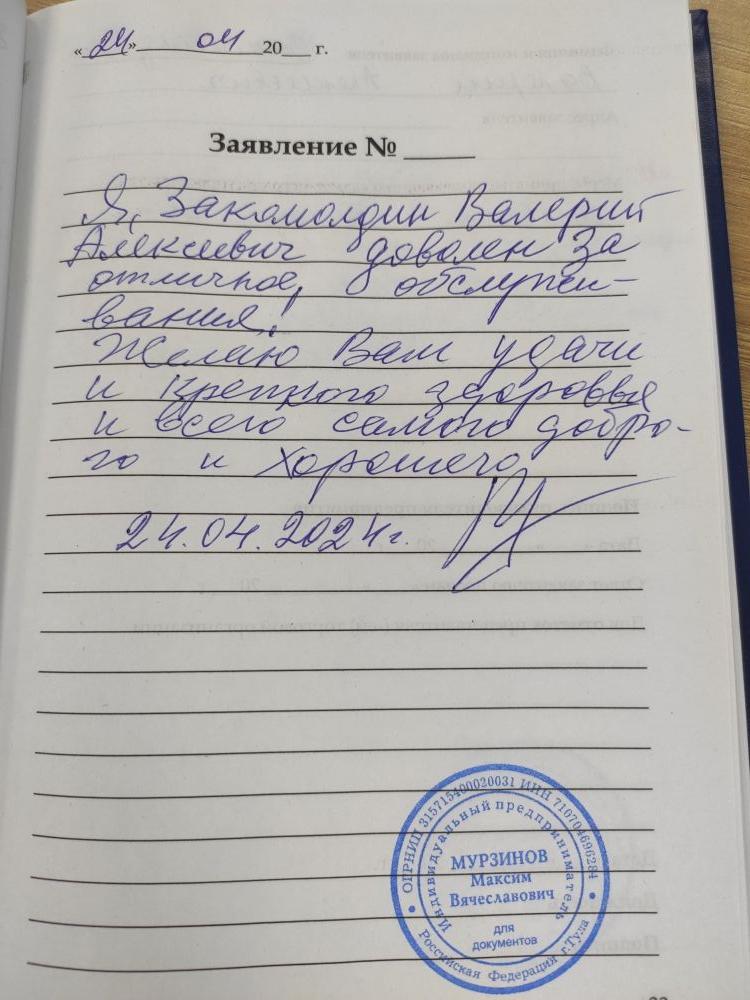 «24» 04 20___ г.
Заявление № _____
Я, Закомолдин Валерий
Алексеевич доволен за
отличное, обслужи-
вания!
Желаю Вам удачи
и крепкого здоровья
и всего самого добро-
го и хорошего
24.04.2024г.
ОГРНИП 315715400020031 ИНН 710704696284
Индивидуальный предприниматель
МУРЗИНОВ
Максим
Вячеславович
для
документов
Российская Федерация г.Тула